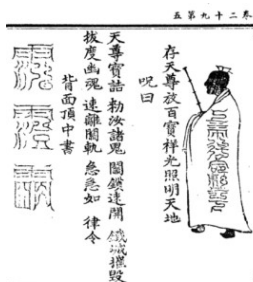 卷二十九第五
存天尊放百寶祥光照明天地
呪曰
天尊寶誥 勑汝諸鬼 開 鐵城摧毀
拔度幽魂 速離闇軌 急急如 律令
背面頂中書